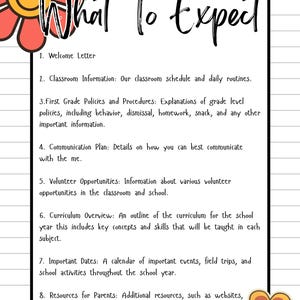 What To Expect
1. Welcome Letter
2. Classroom Information: Our classroom schedule and daily routines.
3.First Grade Policies and Procedures: Explanations of grade level
policies, including behavior, dismissal, homework, snack, and any other
important information.
4. Communication Plan: Details on how you can best communicate
with the me.
5. Volunteer Opportunities: Information about various volunteer
opportunities in the classroom and school.
6. Curriculum Overview: An outline of the curriculum for the school
year this includes key concepts and skills that will be taught in each
subject.
7. Important Dates: A calendar of important events, field trips, and
school activities throughout the school year.
8. Resources for Parents: Additional resources, such as websites,